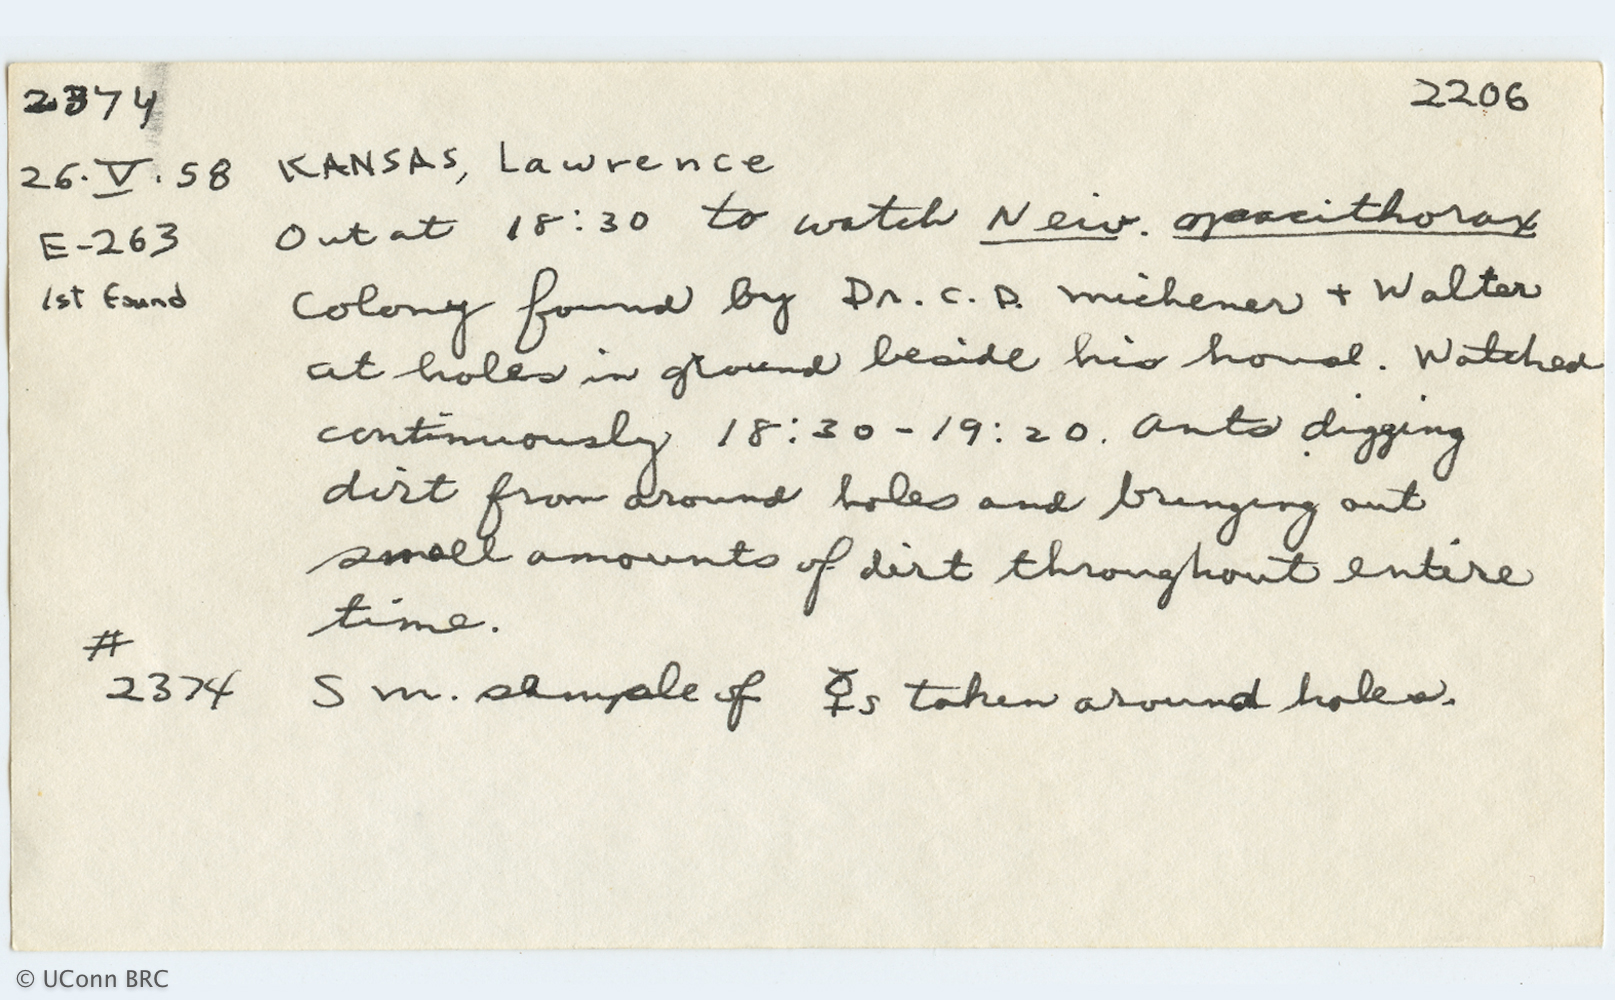 2374 2206
26.V.58 KANSAS, Lawrence
E-263 Out at 18:30 to watch Neiv. opacithorax
1st Found Colony found by Dr. C. D. Michener + Walter
at holes in ground beside his house. Watched
continuously 18:30-19:20. Ants digging
dirt from around holes and bringing out
small amounts of dirt throughout entire
time.
#
2374 Sm. sample of ☿s taken around holes.
© UConn BRC